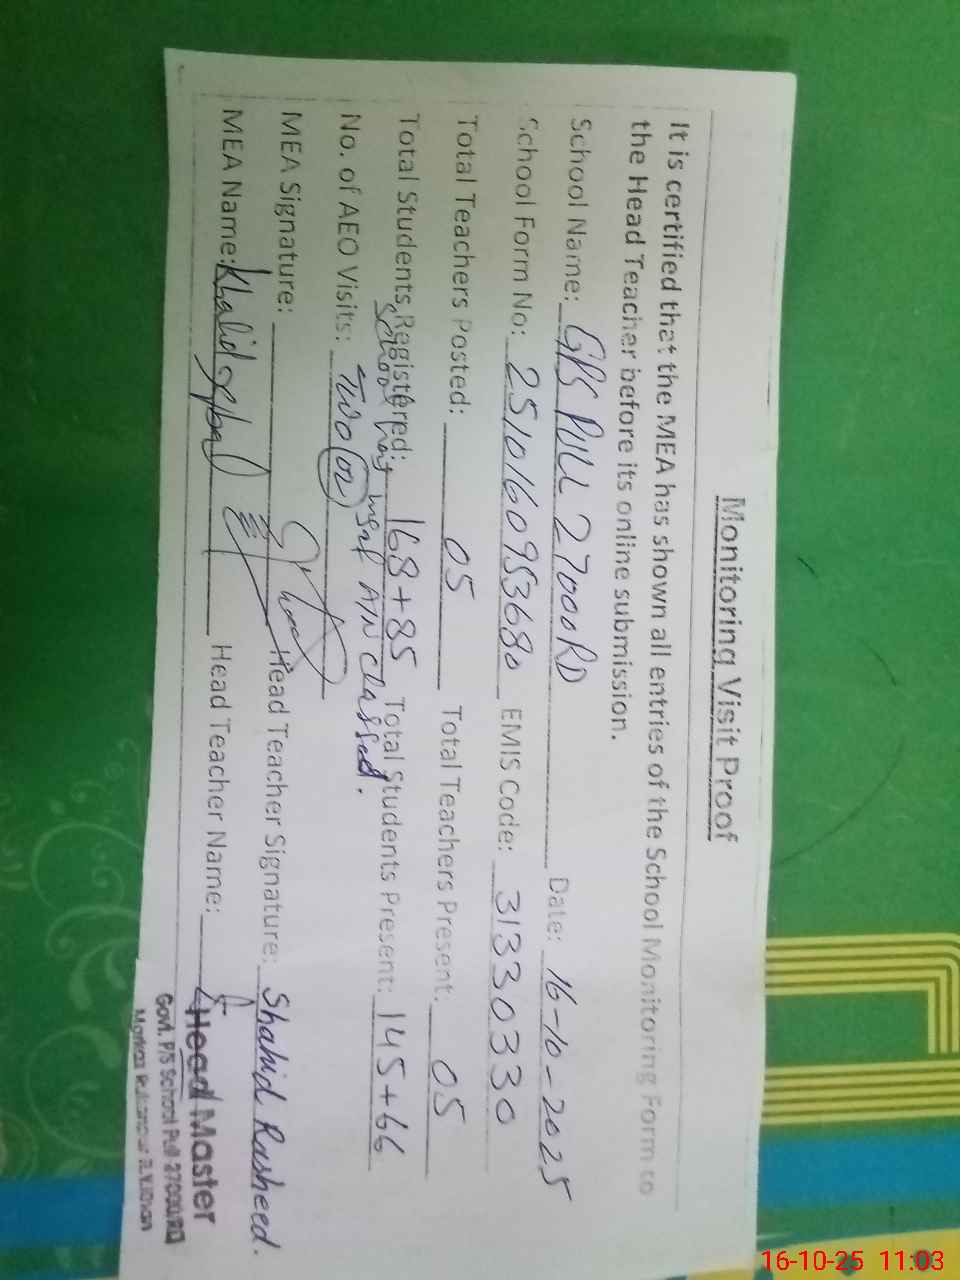 Monitoring Visit Proof
It is certified that the MEA has shown all entries of the School Monitoring Form to
the Head Teacher before its online submission.
School Name: GPS PULL 27000RD Date: 16-10-2025
School Form No: 2510160953680 EMIS Code: 31330330
Total Teachers Posted: 05 Total Teachers Present: 05
Total Students Registered: 168+85 Total Students Present: 145+66
School has insaf A/N classes.
No. of AEO Visits: Two (02)
MEA Signature: Head Teacher Signature: Shahid Rasheed.
MEA Name: Khalid Iqbal Head Teacher Name:
Head Master
Govt. P/S School Pull 27000/RD
Markaz R.Y.Khan
16-10-25 11:03